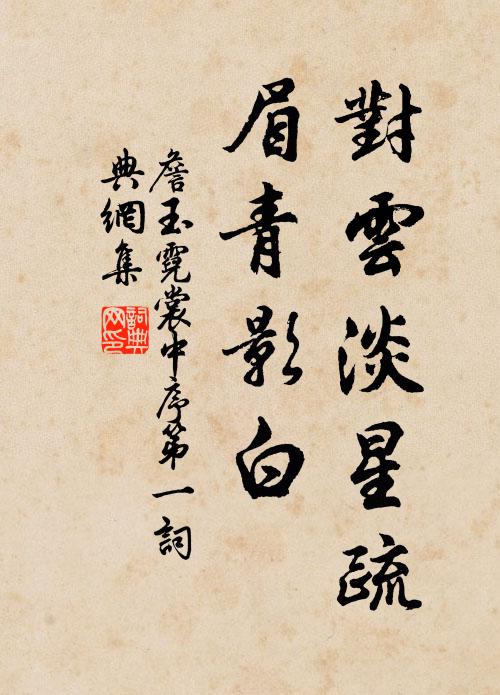 對雲淡星疏
眉青影白
詹玉霓裳中序第一詞
典網集
詞典網印